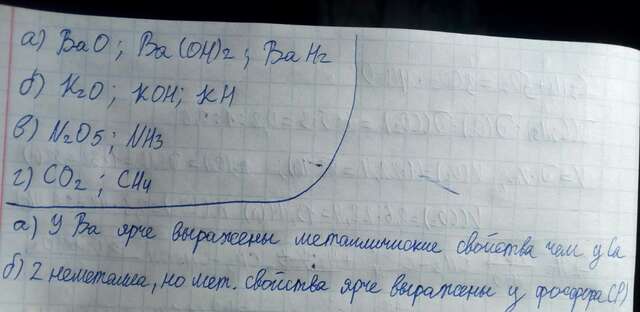 а) BaO; Ba(OH)2; BaH2
б) K2O; KOH; KH
в) N2O5; NH3
г) CO2; CH4
а) У Ba ярче выражены металличиские свойства чем у Ca
б) 2 неметалла, но мет. свойства ярче выражены у фосфора (P)